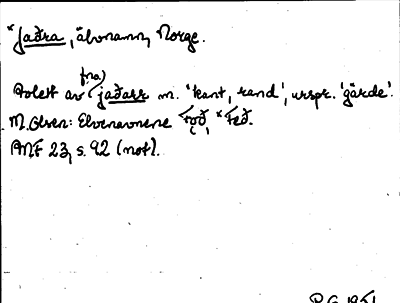 *Jaðra, älvnamn, Norge.
fno)
Avlett av (jaðarr m. 'kant, rand', urspr. 'gärde'.
M. Olsen: Elvenavnene Tǫð, *Teð.
ANF 23, s. 92 (not).
P.G. 1951